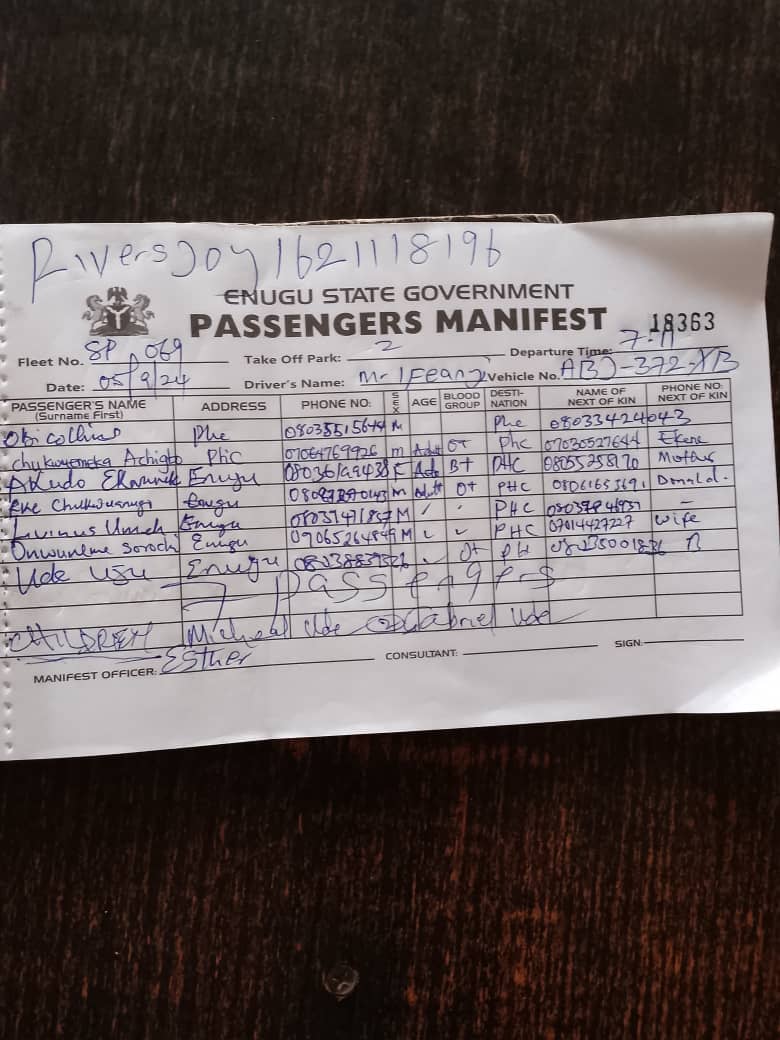 RiversJoy 1621118196
ENUGU STATE GOVERNMENT
PASSENGERS MANIFEST 18363
Fleet No. SP 069 Take Off Park: 2 Departure Time: 7-11
Date: 05/9/24 Driver's Name: Mr Ifeanyi Vehicle No. ABJ-372-XB
PASSENGER'S NAME (Surname First) ADDRESS PHONE NO: SEX AGE BLOOD GROUP DESTINATION NAME OF NEXT OF KIN PHONE NO: NEXT OF KIN
Obi collins Phc 08038515644 M Phc 08033424043
Chukwuemeka Achigbo Phc 07064769926 m Adult O+ Phc 07030527644 Ekene
Akudo Enugu F B+ PHC Mother
Eke Enugu m Adult O+ PHC Donald.
Livinus Enugu M PHC –
Onwuneme Sorochi Enugu 09065264849 M PHC 07014427227 wife
Ude Enugu O+ B
7 passengers
CHILDREN Micheal Ude Gabriel Ude
MANIFEST OFFICER: Esther CONSULTANT: SIGN: